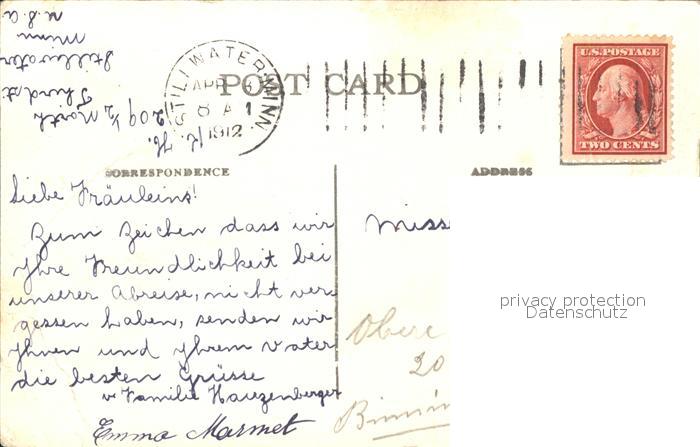 U.S.A
Minn
Stillwater
Third st
209 1/2 North
STILLWATER MINN
APR
8 A
1912
POST CARD
U.S. POSTAGE
TWO CENTS
CORRESPONDENCE
ADDRESS
Liebe Fräuleins!
Zum Zeichen dass wir
Ihre Freundlichkeit bei
unserer Abreise, nicht ver-
gessen haben, senden wir
Ihnen und Ihrem Vater
die besten Grüsse
v Familie Hauzenberger
Emma Marmet
Miss
Obere
20
privacy protection
Datenschutz